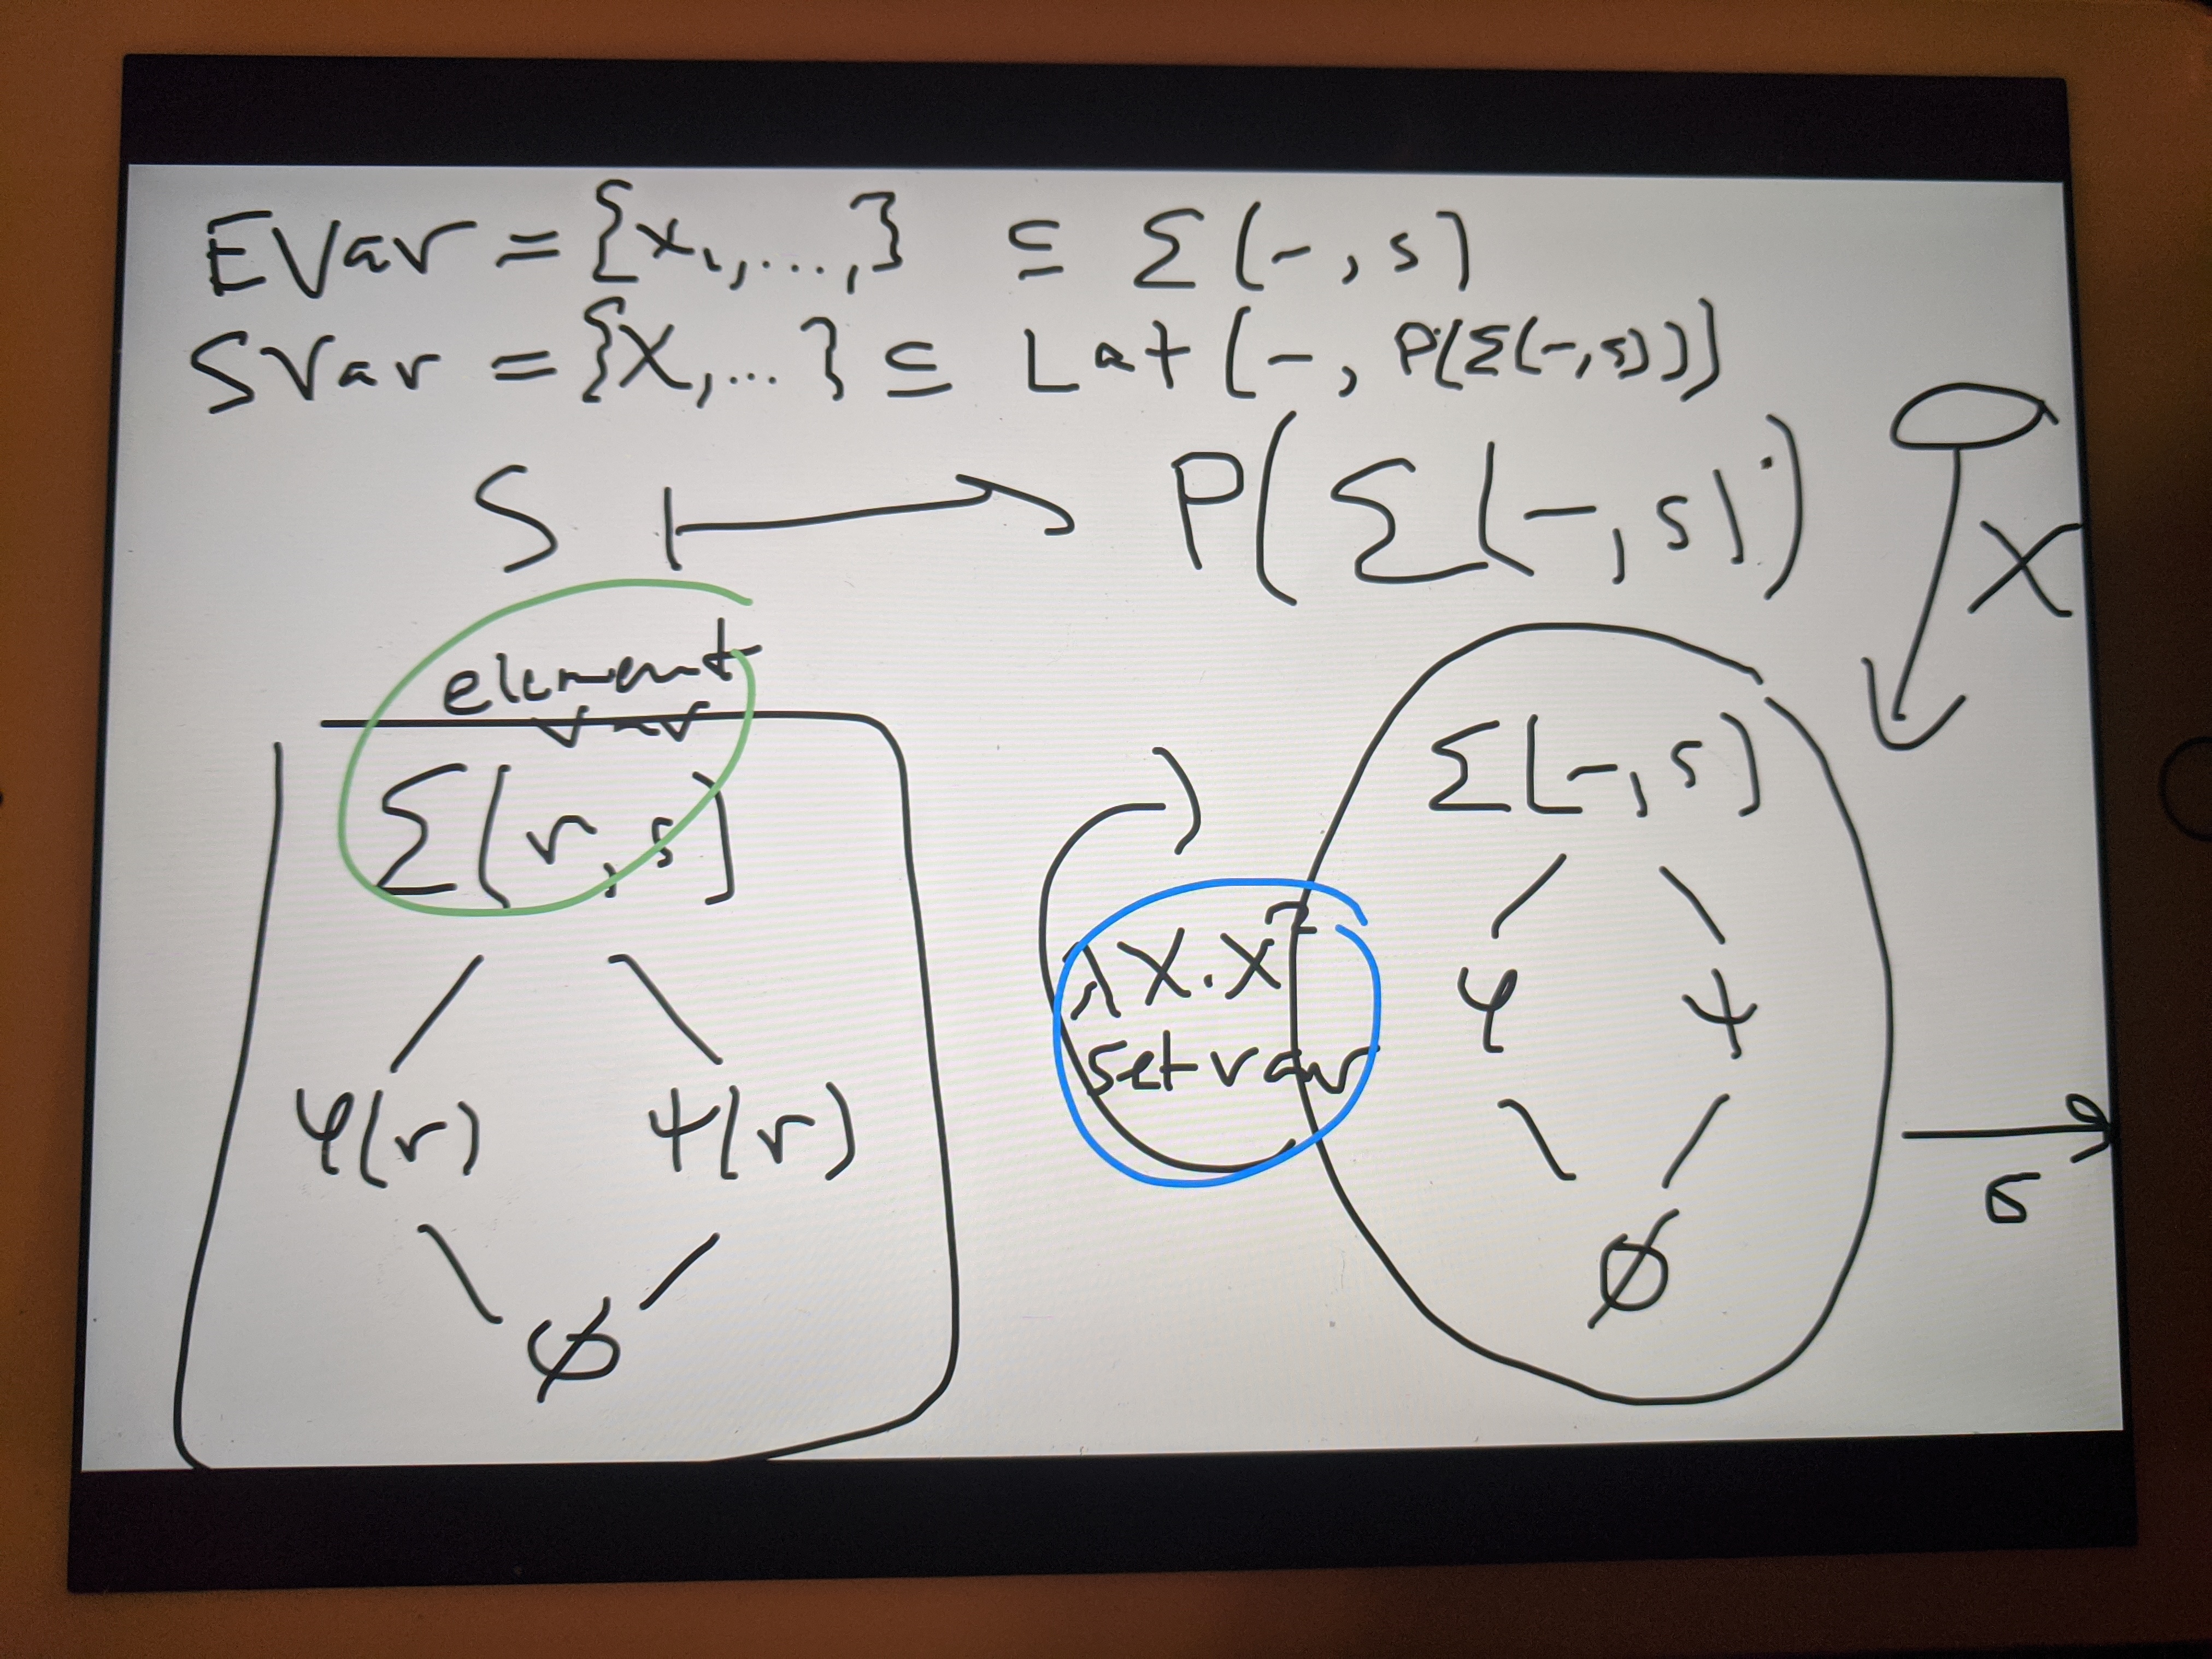 EVar = {x₁,...,} ⊆ Σ(-, s)
SVar = {X, ... } ⊆ Lat(-, P(Σ(-,s)))
S ↦ P(Σ(-, s))
X
element
var
Σ(r, s)
φ(r) ψ(r)
∅
λX.X²
setvar
Σ(-, s)
φ ψ
∅
σ